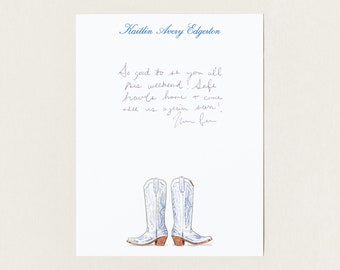 Kaitlin Avery Edgerton
So good to se you all
this weekend! Safe
travels home + come
see us again soon!